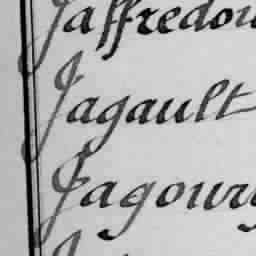 Jaffredou
Jagault
Jagoury